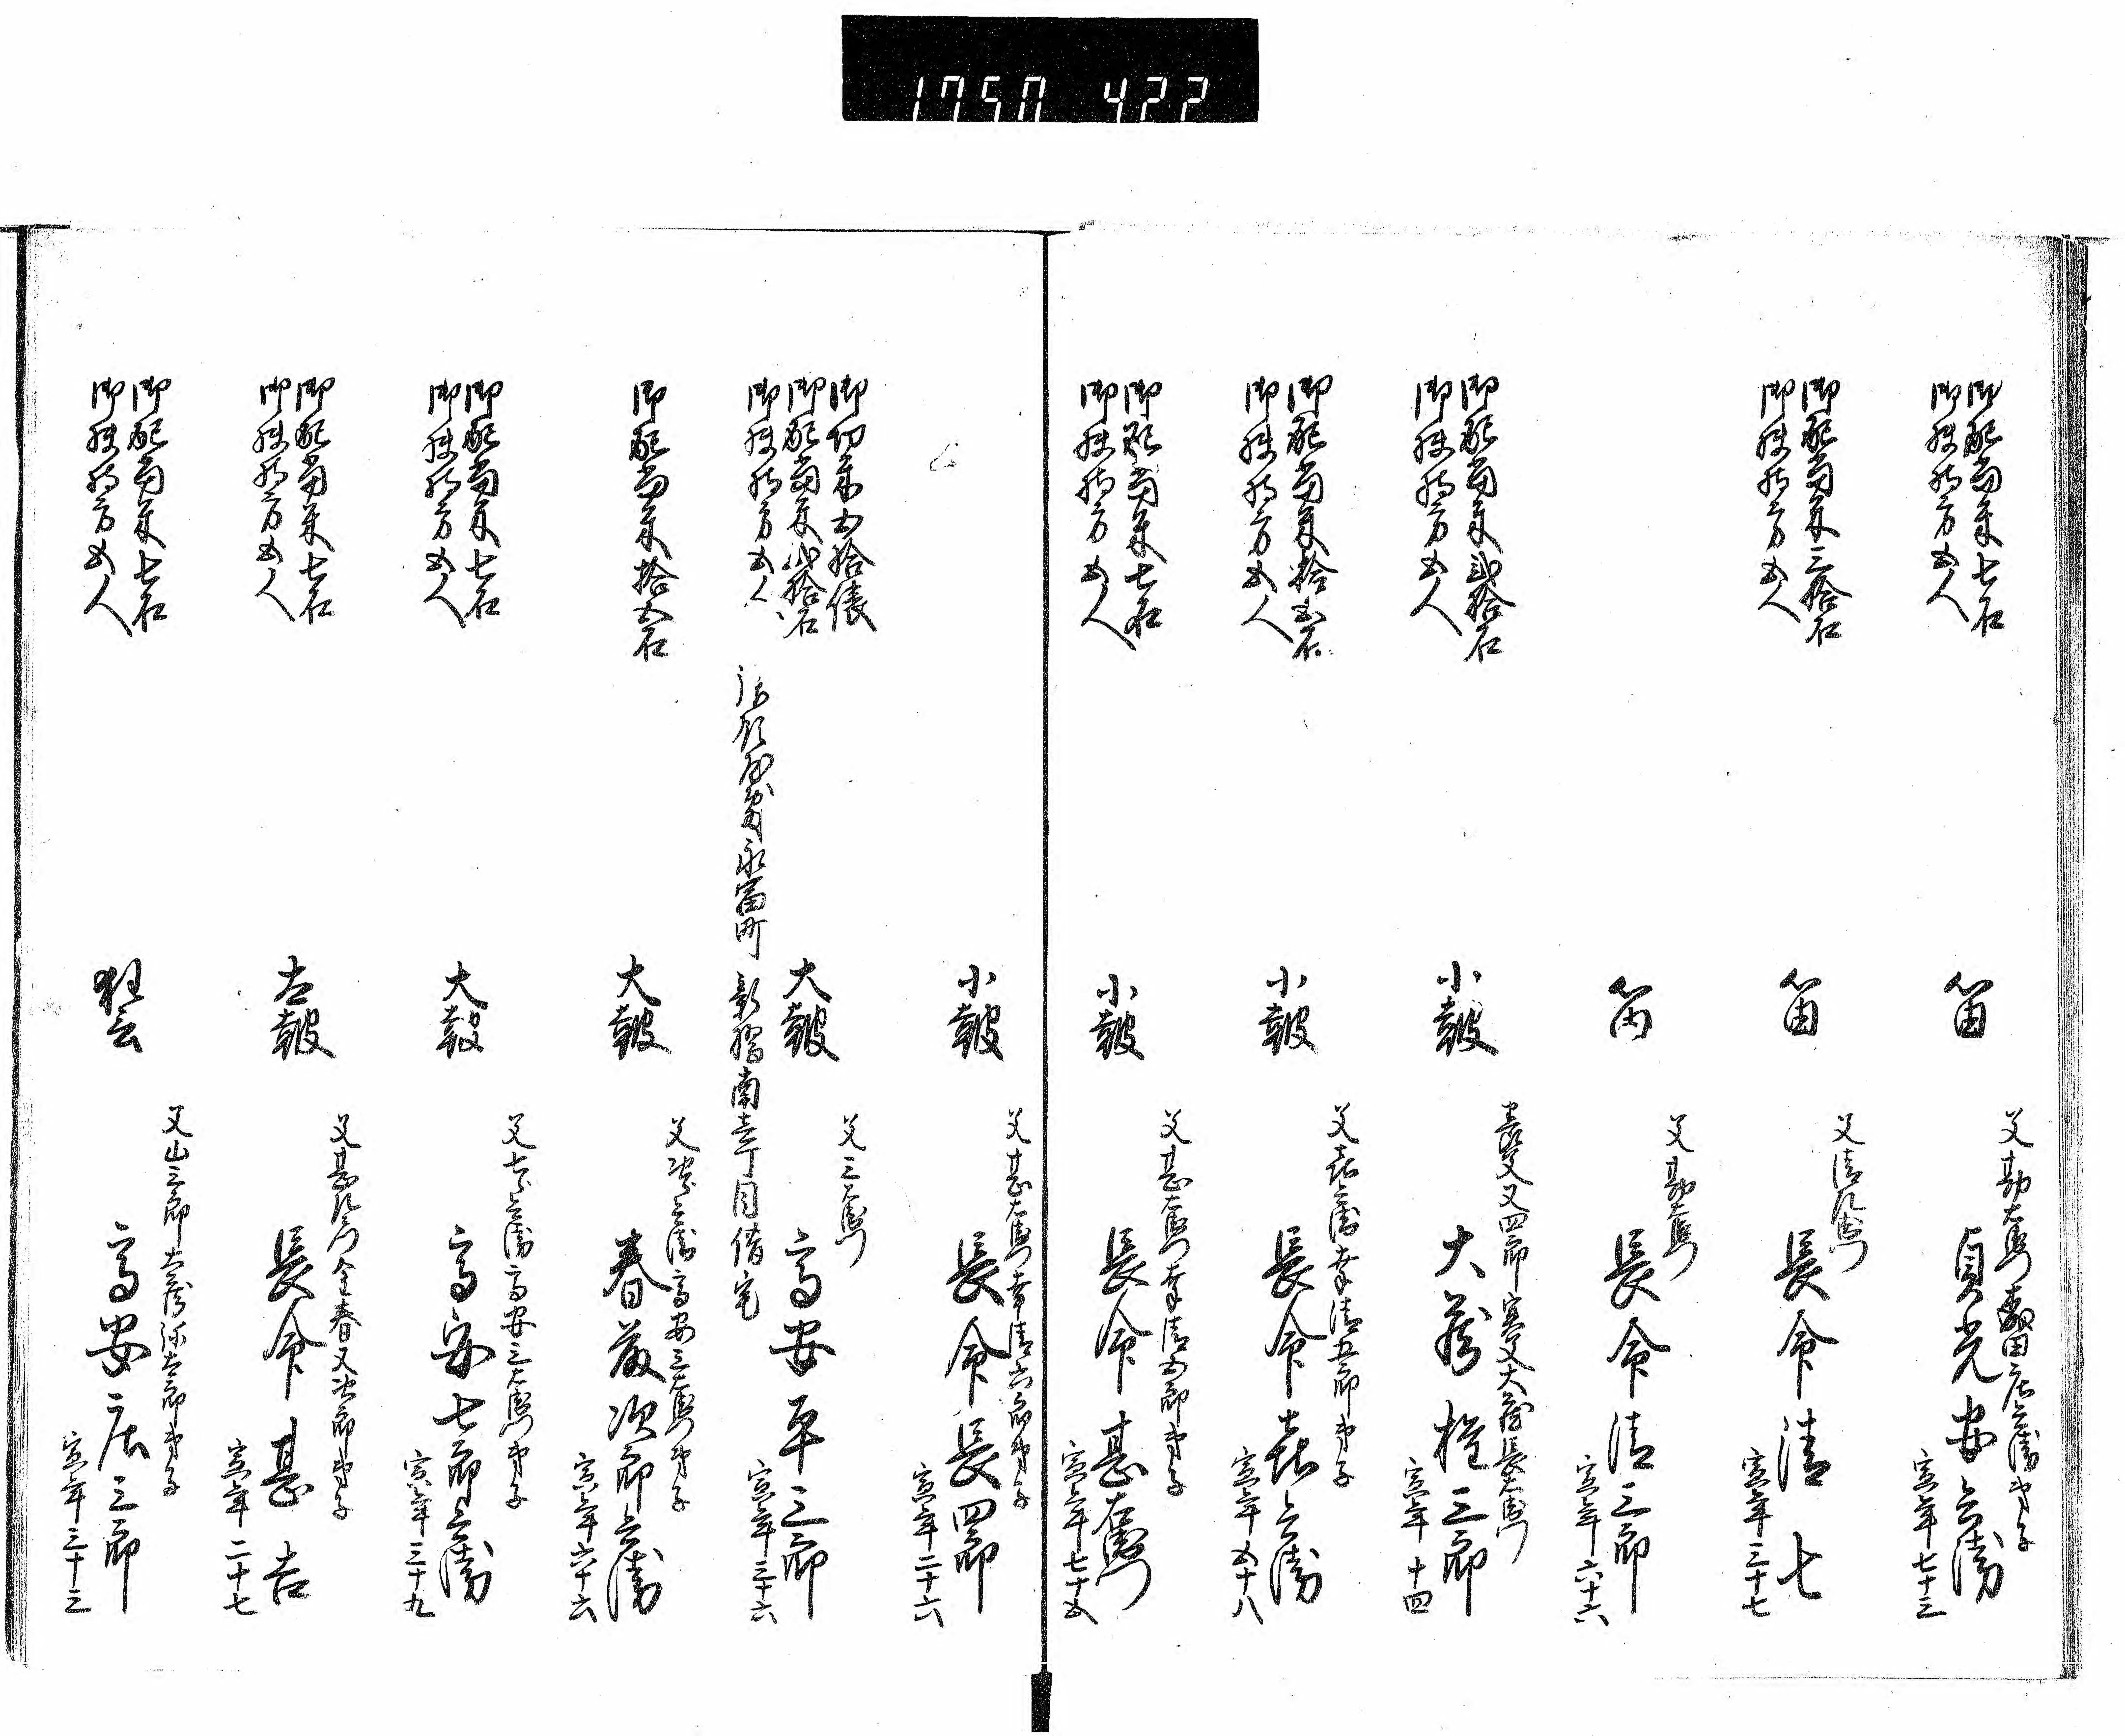 1750 422
御配当米七石
御扶持方五人
笛
父勘左衛門春田庄兵衛弟子
貞光安兵衛
寅年七十三
御配当米三拾石
御扶持方五人
笛
父清左衛門
長命清七
寅年三十七
笛
父勘左衛門
長命清三郎
寅年六十六
御配当米弐拾石
御扶持方五人
小皷
養父又四郎実父大蔵長左衛門
大蔵権三郎
寅年十四
御配当米拾五石
御扶持方五人
小皷
父喜兵衛幸清五郎弟子
長命喜兵衛
寅年五十八
御配当米七石
御扶持方五人
小皷
父甚左衛門幸清五郎弟子
長命甚右衛門
寅年七十五
小皷
父甚左衛門幸清六郎弟子
長命長四郎
寅年二十六
御切米五拾俵
御配当米弐拾石
御扶持方五人
大皷
父三左衛門
高安平三郎
寅年三十六
永富町
新橋南壱丁目借宅
御配当米拾五石
大皷
父次兵衛高安三左衛門弟子
春藤次郎兵衛
寅年六十六
御配当米七石
御扶持方五人
大皷
父七兵衛高安三左衛門弟子
高安七郎兵衛
寅年三十九
御配当米七石
御扶持方五人
太皷
父甚左衛門金春又次郎弟子
長命甚吉
寅年二十七
御配当米七石
御扶持方五人
狂言
父山三郎大蔵弥太郎弟子
高安庄三郎
寅年三十三